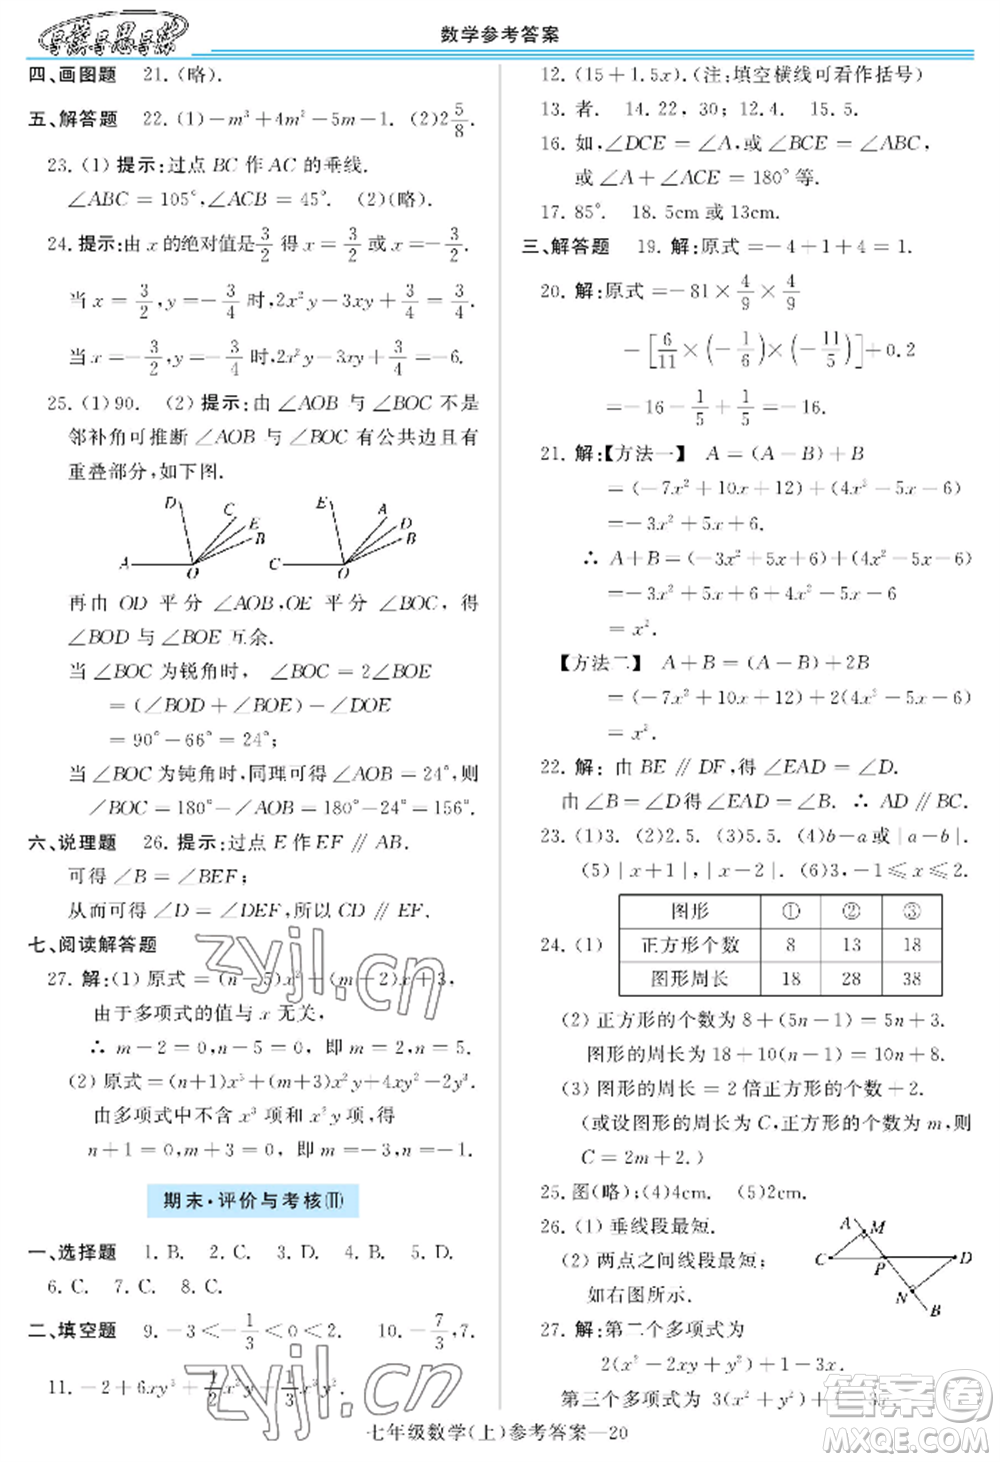 导学导思导练
数学参考答案
四、画图题 21.(略).
五、解答题 22.(1)-m³+4m²-5m-1. (2)2 5/8.
23.(1)提示:过点BC作AC的垂线.
∠ABC=105°,∠ACB=45°. (2)(略).
24.提示:由x的绝对值是3/2得x=3/2或x=-3/2.
当x=3/2,y=-3/4时,2x²y-3xy=0.
当x=-3/2,y=-3/4时,2x²y-3xy=-6.
25.(1)90. (2)提示:由∠AOB与∠BOC不是
邻补角可推断∠AOB与∠BOC有公共边且有
重叠部分,如下图.
D C E B A O
E A D B C O
再由OD平分∠AOB,OE平分∠BOC,得
∠BOD与∠BOE互余.
当∠BOC为锐角时,∠BOC=2∠BOE
=(∠BOD+∠BOE)-∠DOE
=90°-66°=24°;
当∠BOC为钝角时,同理可得∠AOB=24°,则
∠BOC=180°-∠AOB=180°-24°=156°.
六、说理题 26.提示:过点E作EF∥AB.
可得∠B=∠BEF;
从而可得∠D=∠DEF,所以CD∥EF.
七、阅读解答题
27.解:(1)原式=(n-5)x²+(m-2)x+3,
由于多项式的值与x无关,
∴m-2=0,n-5=0,即m=2,n=5.
(2)原式=(n+1)x³+(m+3)x²y+4xy²-2y³.
由多项式中不含x³项和x²y项,得
n+1=0,m+3=0,即m=-3,n=-1.
期末·评价与考核(Ⅱ)
一、选择题 1.B. 2.C. 3.D. 4.B. 5.D.
6.C. 7.C. 8.C.
二、填空题 9.-3<-1/3<0<2. 10.-7/3,7.
11.-2+6xy³+1/2x²y-1/3x³.
12.(15+1.5x).(注:填空横线可看作括号)
13.者. 14.22,30;12.4. 15.5.
16.如,∠DCE=∠A,或∠BCE=∠ABC,
或∠A+∠ACE=180°等.
17.85°. 18.5cm或13cm.
三、解答题 19.解:原式=-4+1+4=1.
20.解:原式=-81×4/9×4/9
-[6/11×(-1/6)×(-11/5)]+0.2
=-16-1/5+1/5=-16.
21.解:【方法一】 A=(A-B)+B
=(-7x²+10x+12)+(4x²-5x-6)
=-3x²+5x+6.
∴A+B=(-3x²+5x+6)+(4x²-5x-6)
=-3x²+5x+6+4x²-5x-6
=x².
【方法二】 A+B=(A-B)+2B
=(-7x²+10x+12)+2(4x²-5x-6)
=x².
22.解:由BE∥DF,得∠EAD=∠D.
由∠B=∠D,得∠EAD=∠B.∴AD∥BC.
23.(1)3. (2)2.5. (3)5.5. (4)b-a或|a-b|.
(5)|x+1|,|x-2|. (6)3,-1≤x≤2.
24.(1)
图形 ① ② ③
正方形个数 8 13 18
图形周长 18 28 38
(2)正方形的个数为8+(5n-5)=5n+3.
图形的周长为18+10(n-1)=10n+8.
(3)图形的周长=2倍正方形的个数+2.
(或设图形的周长为C,正方形的个数为m,则
C=2m+2)
25.图(略);(4)4cm. (5)2cm.
26.(1)垂线段最短.
(2)两点之间线段最短.
如右图所示.
A M C P D N B
27.解:第二个多项式为
2(x²-2x+y²)+1-3x.
第三个多项式为3(x²+y²)
七年级数学(上)参考答案—20
zyjl.cn
zyjl.cn
答案卷